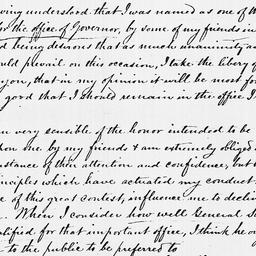 ving understood that I was named as one of th
for the office of Governor, by some of my friends in
d being desirous that as much unanimity as
uld prevail on this occasion, I take the liberty of
you, that in my opinion it will be most for
good that I should remain in the office I
m very sensible of the honor intended to be
upon me by my friends & am extremely obliged
stance of their attention and confidence, but
inciples which have actuated my conduct
e of this great contest, influence me to declin
. When I consider how well General S
alified for that important office, I think he o
to the public to be preferred to